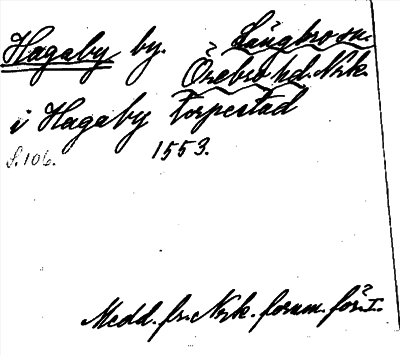 Hagaby by. Längbro sn.
Örebro hd. Nrk.
i Hagaby torpestad
S. 106. 1553.
Medd. fr. Nrk. fornm. för. I.